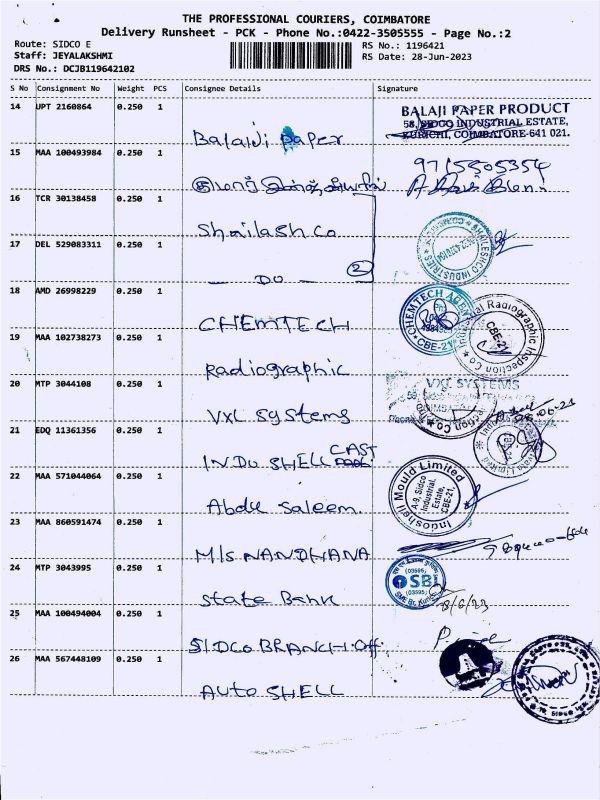 THE PROFESSIONAL COURIERS, COIMBATORE
Delivery Runsheet - PCK - Phone No.:0422-3505555 - Page No.:2
Route: SIDCO E
RS No.: 1196421
Staff: JEYALAKSHMI
RS Date: 28-Jun-2023
DRS No.: DCJB119642102
S No Consignment No Weight PCS Consignee Details Signature
14 UPT 2160864 0.250 1
BALAJI PAPER PRODUCT
58, SIDCO INDUSTRIAL ESTATE,
KURICHI, COIMBATORE-641 021.
Balaji paper
15 MAA 100493984 0.250 1
9715505354
16 TCR 30138458 0.250 1
Shailash Co
SHAILESHCO INDUSTRIES
17 DEL 529083311 0.250 1
— DO — 2
18 AMD 26998229 0.250 1
CHEMTECH
CHEMTECH AGEN
CBE-21
19 MAA 102738273 0.250 1
Radiographic
Radiographic Inspection Co
CBE-21
20 MTP 3044108 0.250 1
VXL Systems
VXL SYSTEMS
21 EDQ 11361356 0.250 1
INDO SHELL CAST
22 MAA 571044064 0.250 1
Abdul Saleem
Indoshell Mould Limited
A-9, Sidco
Industrial,
Estate,
CBE-21.
23 MAA 860591474 0.250 1
M/s NANDHANA
24 MTP 3043995 0.250 1
State Bank
(03595)
SB
(03595)
25 MAA 100494004 0.250 1
SIDCO BRANCH Off
26 MAA 567448109 0.250 1
Auto SHELL